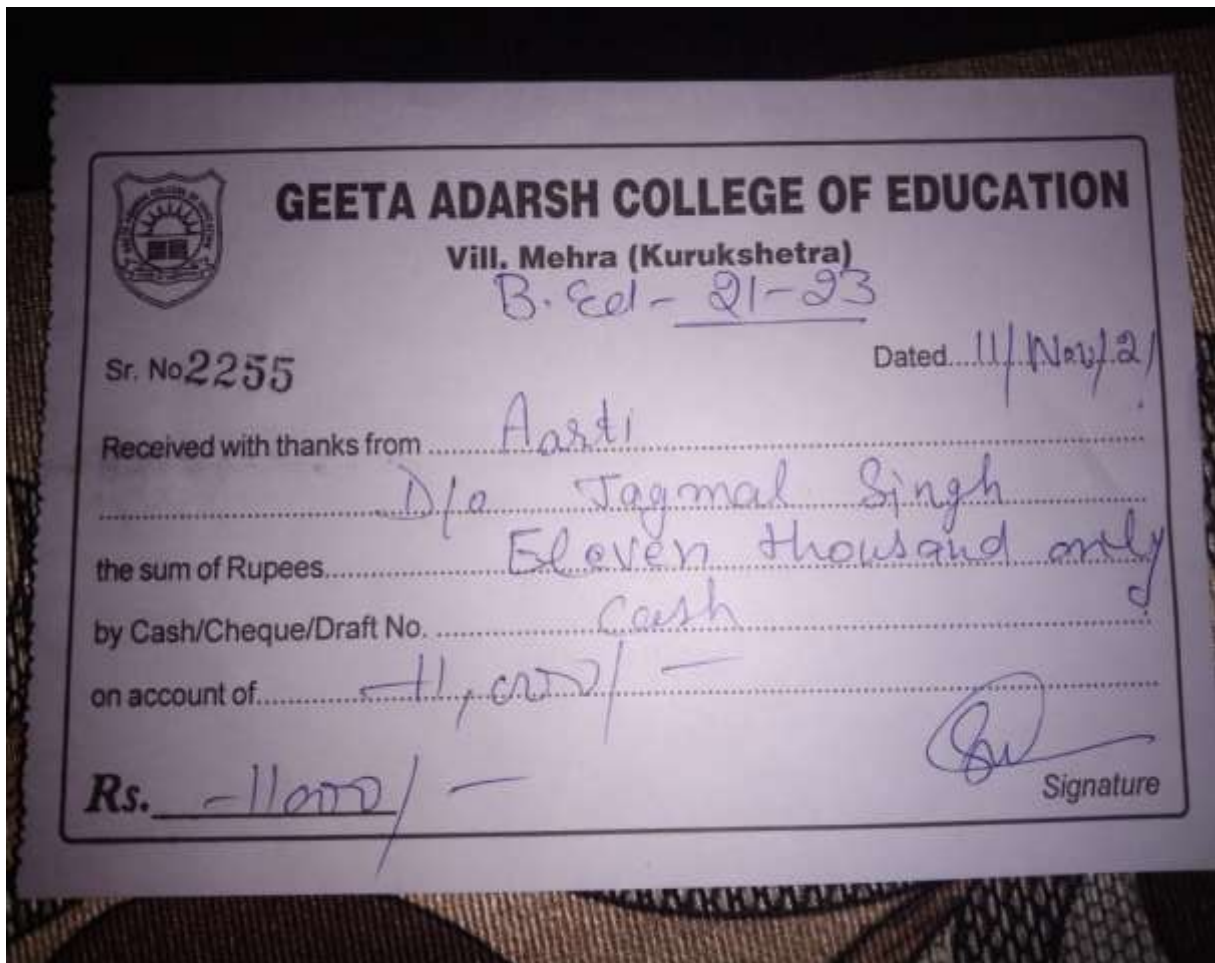 GEETA ADARSH COLLEGE OF EDUCATION
Vill. Mehra (Kurukshetra)
B.Ed - 21-23
Sr. No 2255 Dated....11/Nov/21
Received with thanks from ....Aarti
D/o Jagmal Singh
the sum of Rupees....Eleven thousand only
by Cash/Cheque/Draft No. ....Cash
on account of....11,000/-
Rs. 11000/-
Signature